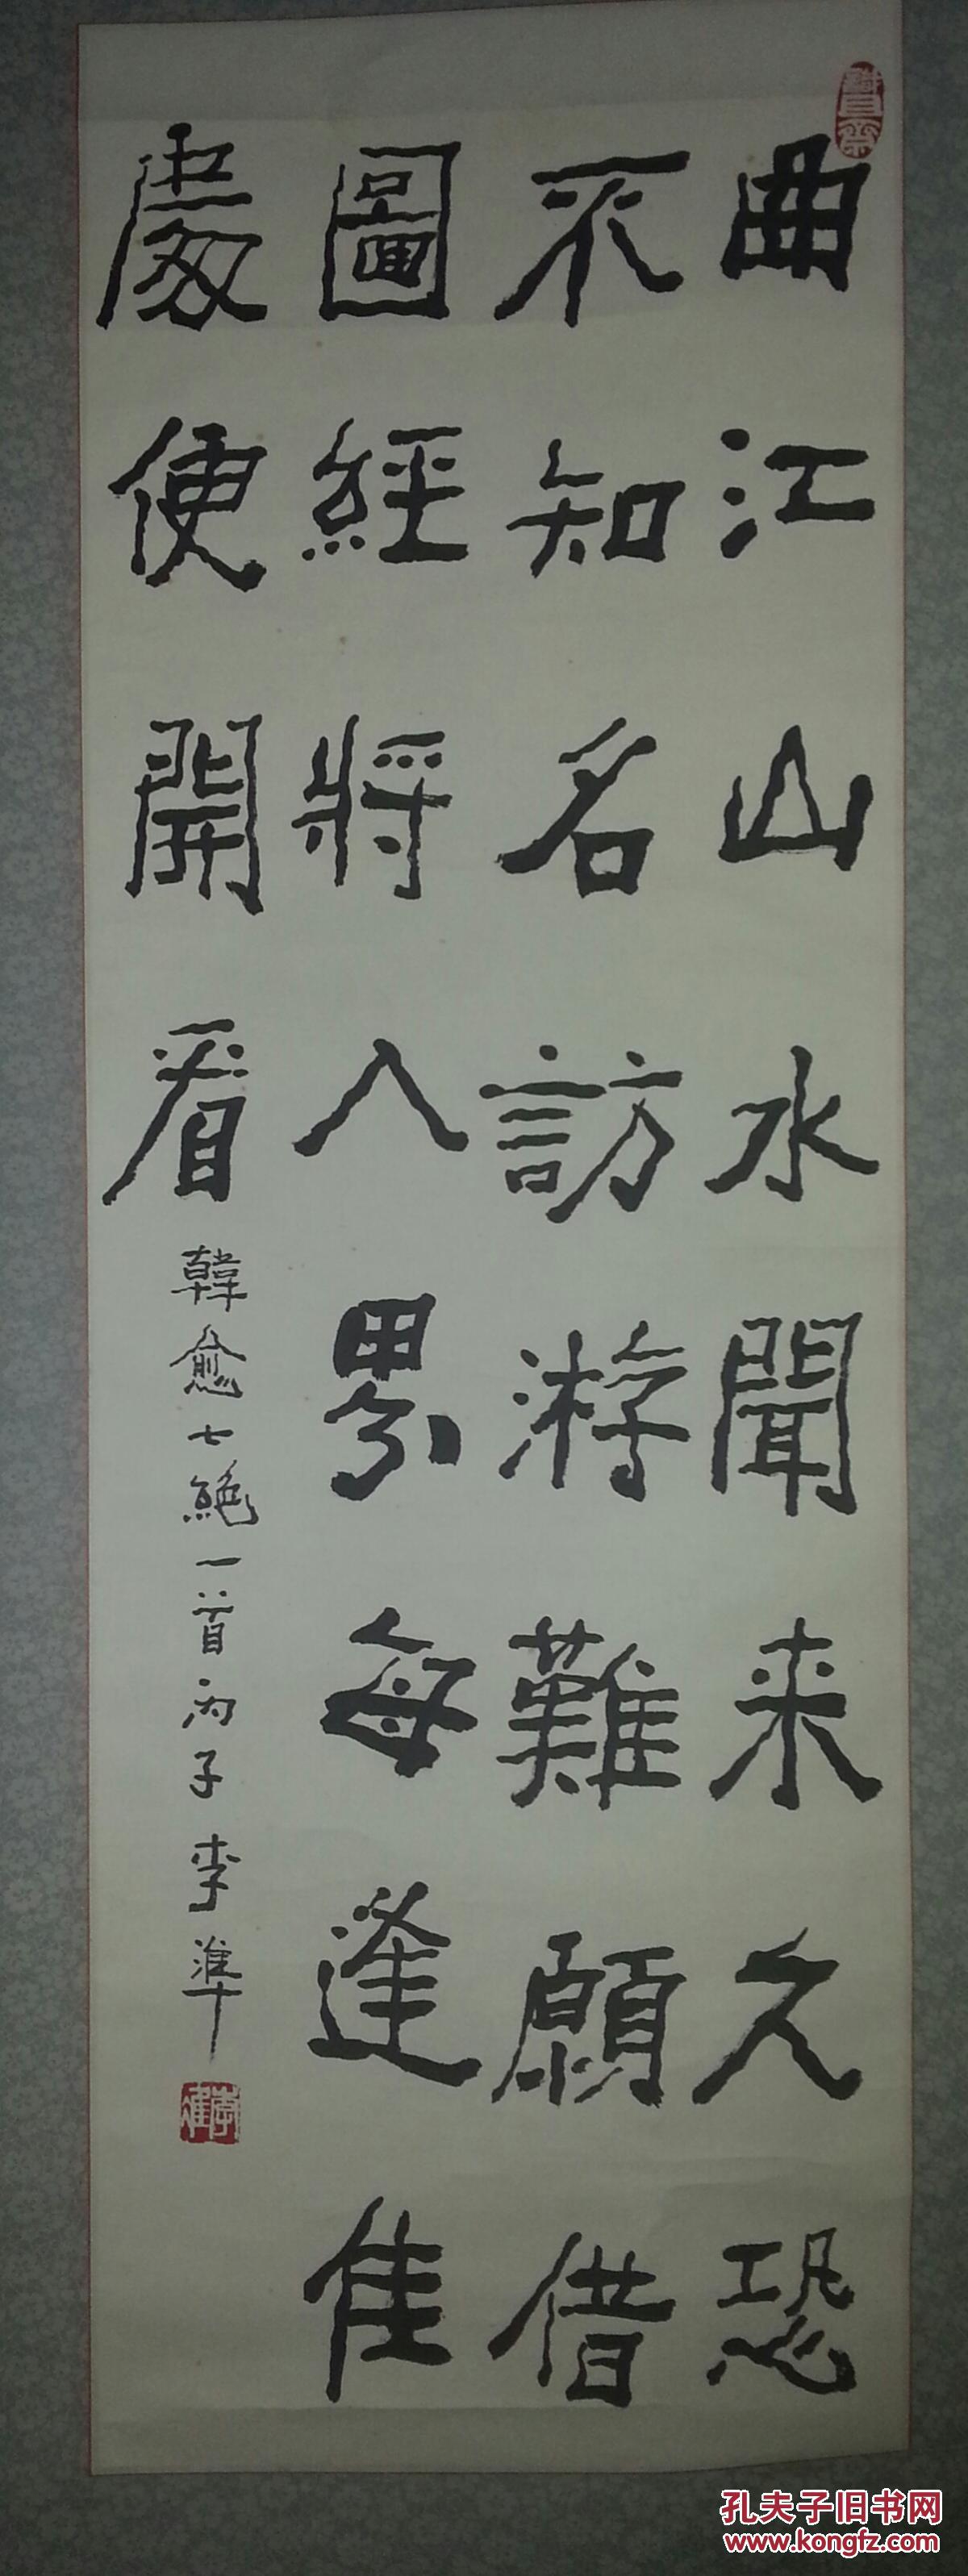 曲江山水聞来久恐
不知名訪游難願借
圖經將入界每逢佳
處便開看
韓愈七絕一首丙子李準
孔夫子旧书网
www.kongfz.com